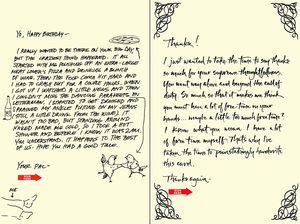 Yo, Happy Birthday—
I really wanted to be there on your big day
but the craziest thing happened. It all
started with me polishing off an extra large
meat lovers pizza and drinking a bunch
of wine. Then the food coma hit hard and
I had to crash out for a couple hours. When
I got up I watched a little video and then
I couldn't miss the dancing
Letterman. I started to get dressed and
I sprained my ankle putting on my jeans
(still a little drunk from the wine). It
wasn't too bad, but standing around
naked made me cold, so I took a hot
shower and before I knew it was 2AM.
You understand. It happens to the best
of us. Hope you had a good time.
Your pal—
Me
Thanks!
I just wanted to take the time to say thanks
so much for your supreme thoughtfulness.
You went way above and beyond the call of
duty. So much so that it makes me think
you must have a lot of free time on your
hands... maybe a little too much free time?
I know what you mean. I have a lot
of free time myself. That's why I've
taken the time to painstakingly handwrite
this card.
Thanks again—